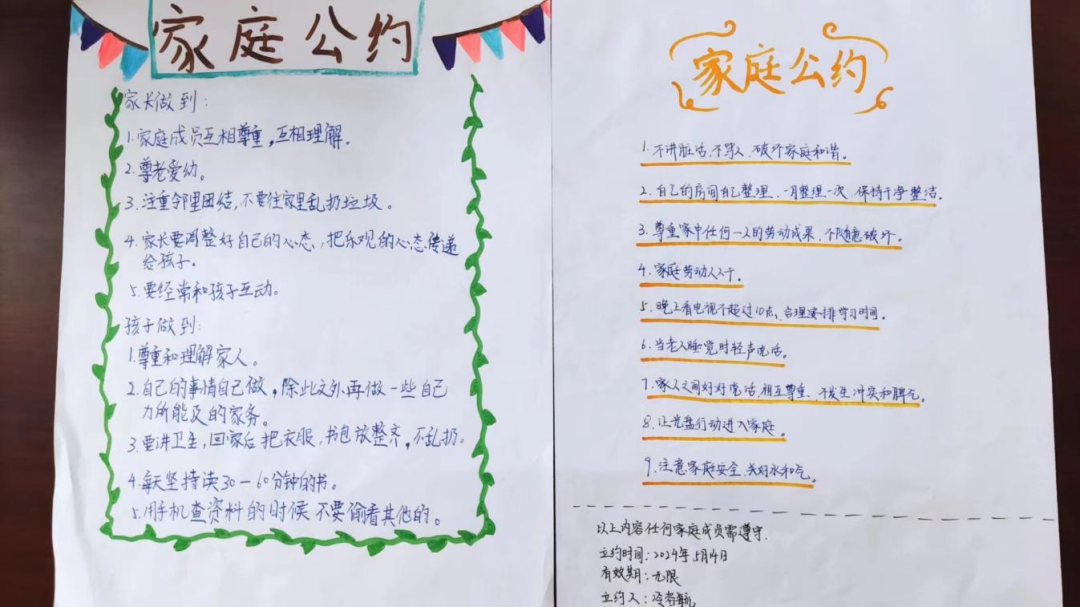 家庭公约
家长做到:
1.家庭成员互相尊重,互相理解.
2.尊老爱幼。
3.注重邻里团结,不要往家里乱扔垃圾。
4.家长要调整好自己的心态,把乐观的心态传递
给孩子.
5.要经常和孩子互动。
孩子做到:
1.尊重和理解家人。
2.自己的事情自己做,除此之外再做一些自己
力所能及的家务。
3.要讲卫生,回家后把衣服,书包放整齐,不乱扔。
4.每天坚持读30-60分钟的书。
5.用手机查资料的时候不要偷看其他的。
家庭公约
1.不讲脏话、不骂人、破坏家庭和谐。
2.自己的房间自己整理、一月整理一次、保持干净整洁.
3.尊重家中任何一人的劳动成果、不随意破坏。
4.家庭劳动人人干。
5.晚上看电视不超过10点、合理安排学习时间。
6.当老人睡觉时轻声说话。
7.家人之间好好说话,相互尊重、不发生冲突和脾气。
8.让光盘行动进入家庭。
9.注意家庭安全、关好水和气。
以上内容任何家庭成员需遵守.
立约时间:2024年5月4日
有效期:无限
立约人: